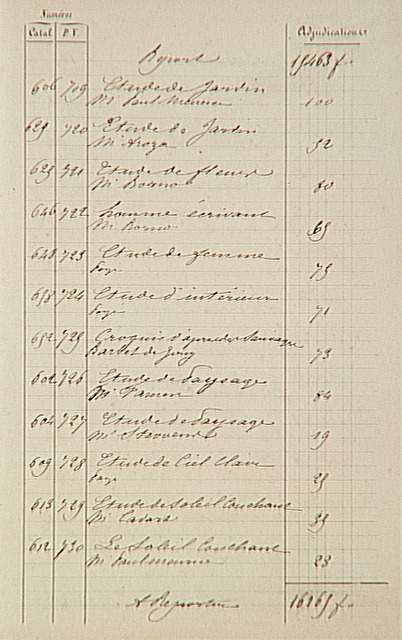 Numéros
Catal. P.V. Adjudications
Report 15463 f.
606 709 Etude de Jardin
Mr Paul Meurice 100
629 720 Etude de Jardin
Mr Aroza 52
625 721 Etude de fleurs
Mr 80
646 722 homme écrivant
Mr 65
648 723 Etude de femme
75
658 724 Etude d'intérieur
71
652 725 Croquis d'après des Sauvages
Barbet de Jouy 73
602 726 Etude de Paysage
Mr 84
604 727 Etude de Paysage
Mr 19
609 728 Etude de Ciel Claire
25
613 729 Etude de Soleil Couchant
Mr 35
612 730 Le Soleil Couchant
Mr Paul Meurice 23
A Reporter 16165 f.